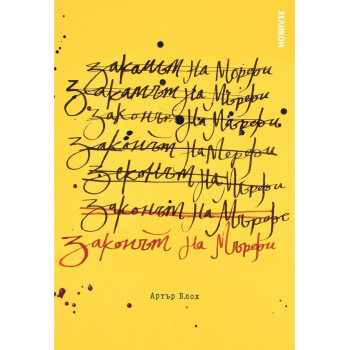 ХЕЛИКОН
Законът на Морфи
Закамът на Мърфи
Законъ на Мърфи
Законът на Мерфи
Зеконът на Мърфи
Законът на Мърфе
Законът на Мърфи
Артър Блох